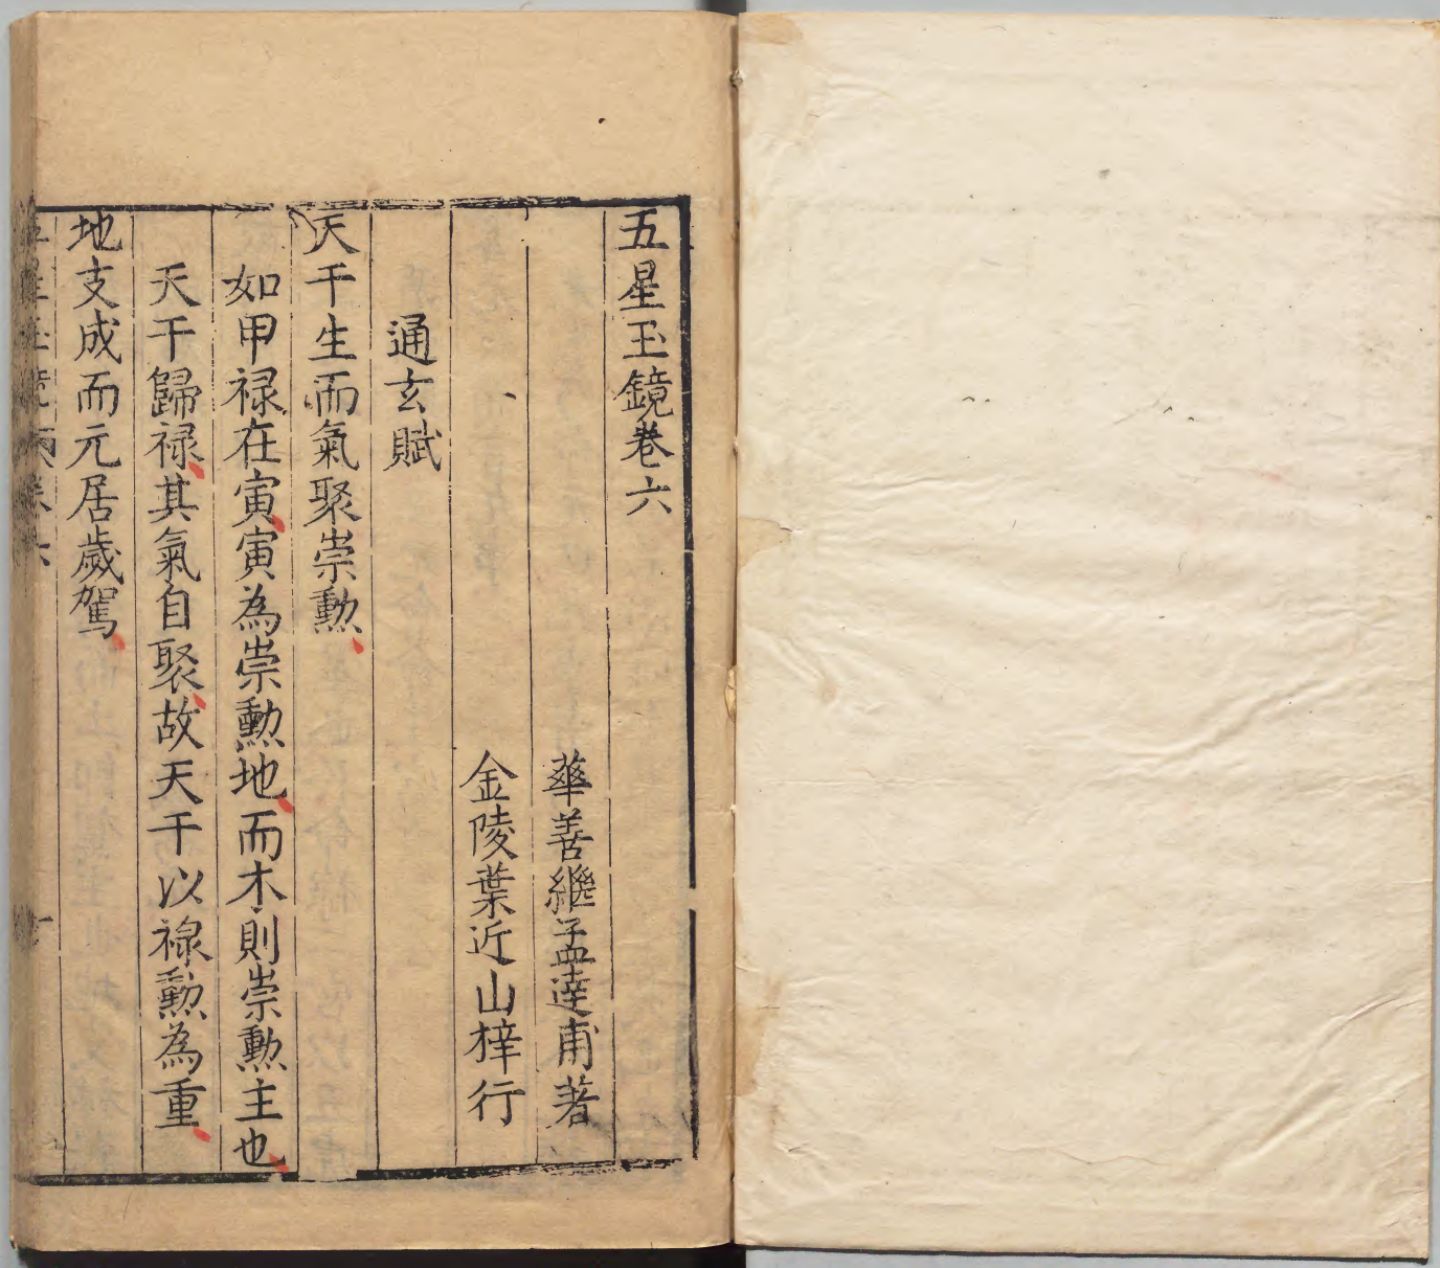 五星玉鏡卷六
華善繼孟達甫著
金陵葉近山梓行
通玄賦
天干生而氣聚崇勲
如甲禄在寅寅為崇勲地而木則崇勲主也
天干歸禄其氣自聚故天干以禄勲為重
地支成而元居歲駕